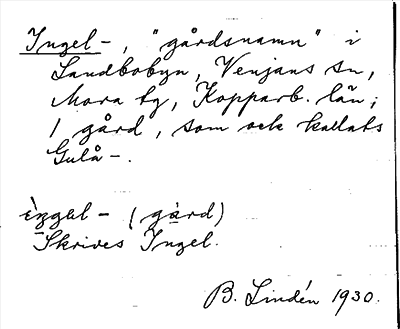 Ingel-, "gårdsnamn" i
Landbobyn, Venjans sn,
Mora tg, Kopparb. län;
1 gård, som ock kallats
Gulå-.
ìŋgəl- (gàrd)
Skrives Ingel.
B. Lindén 1930.